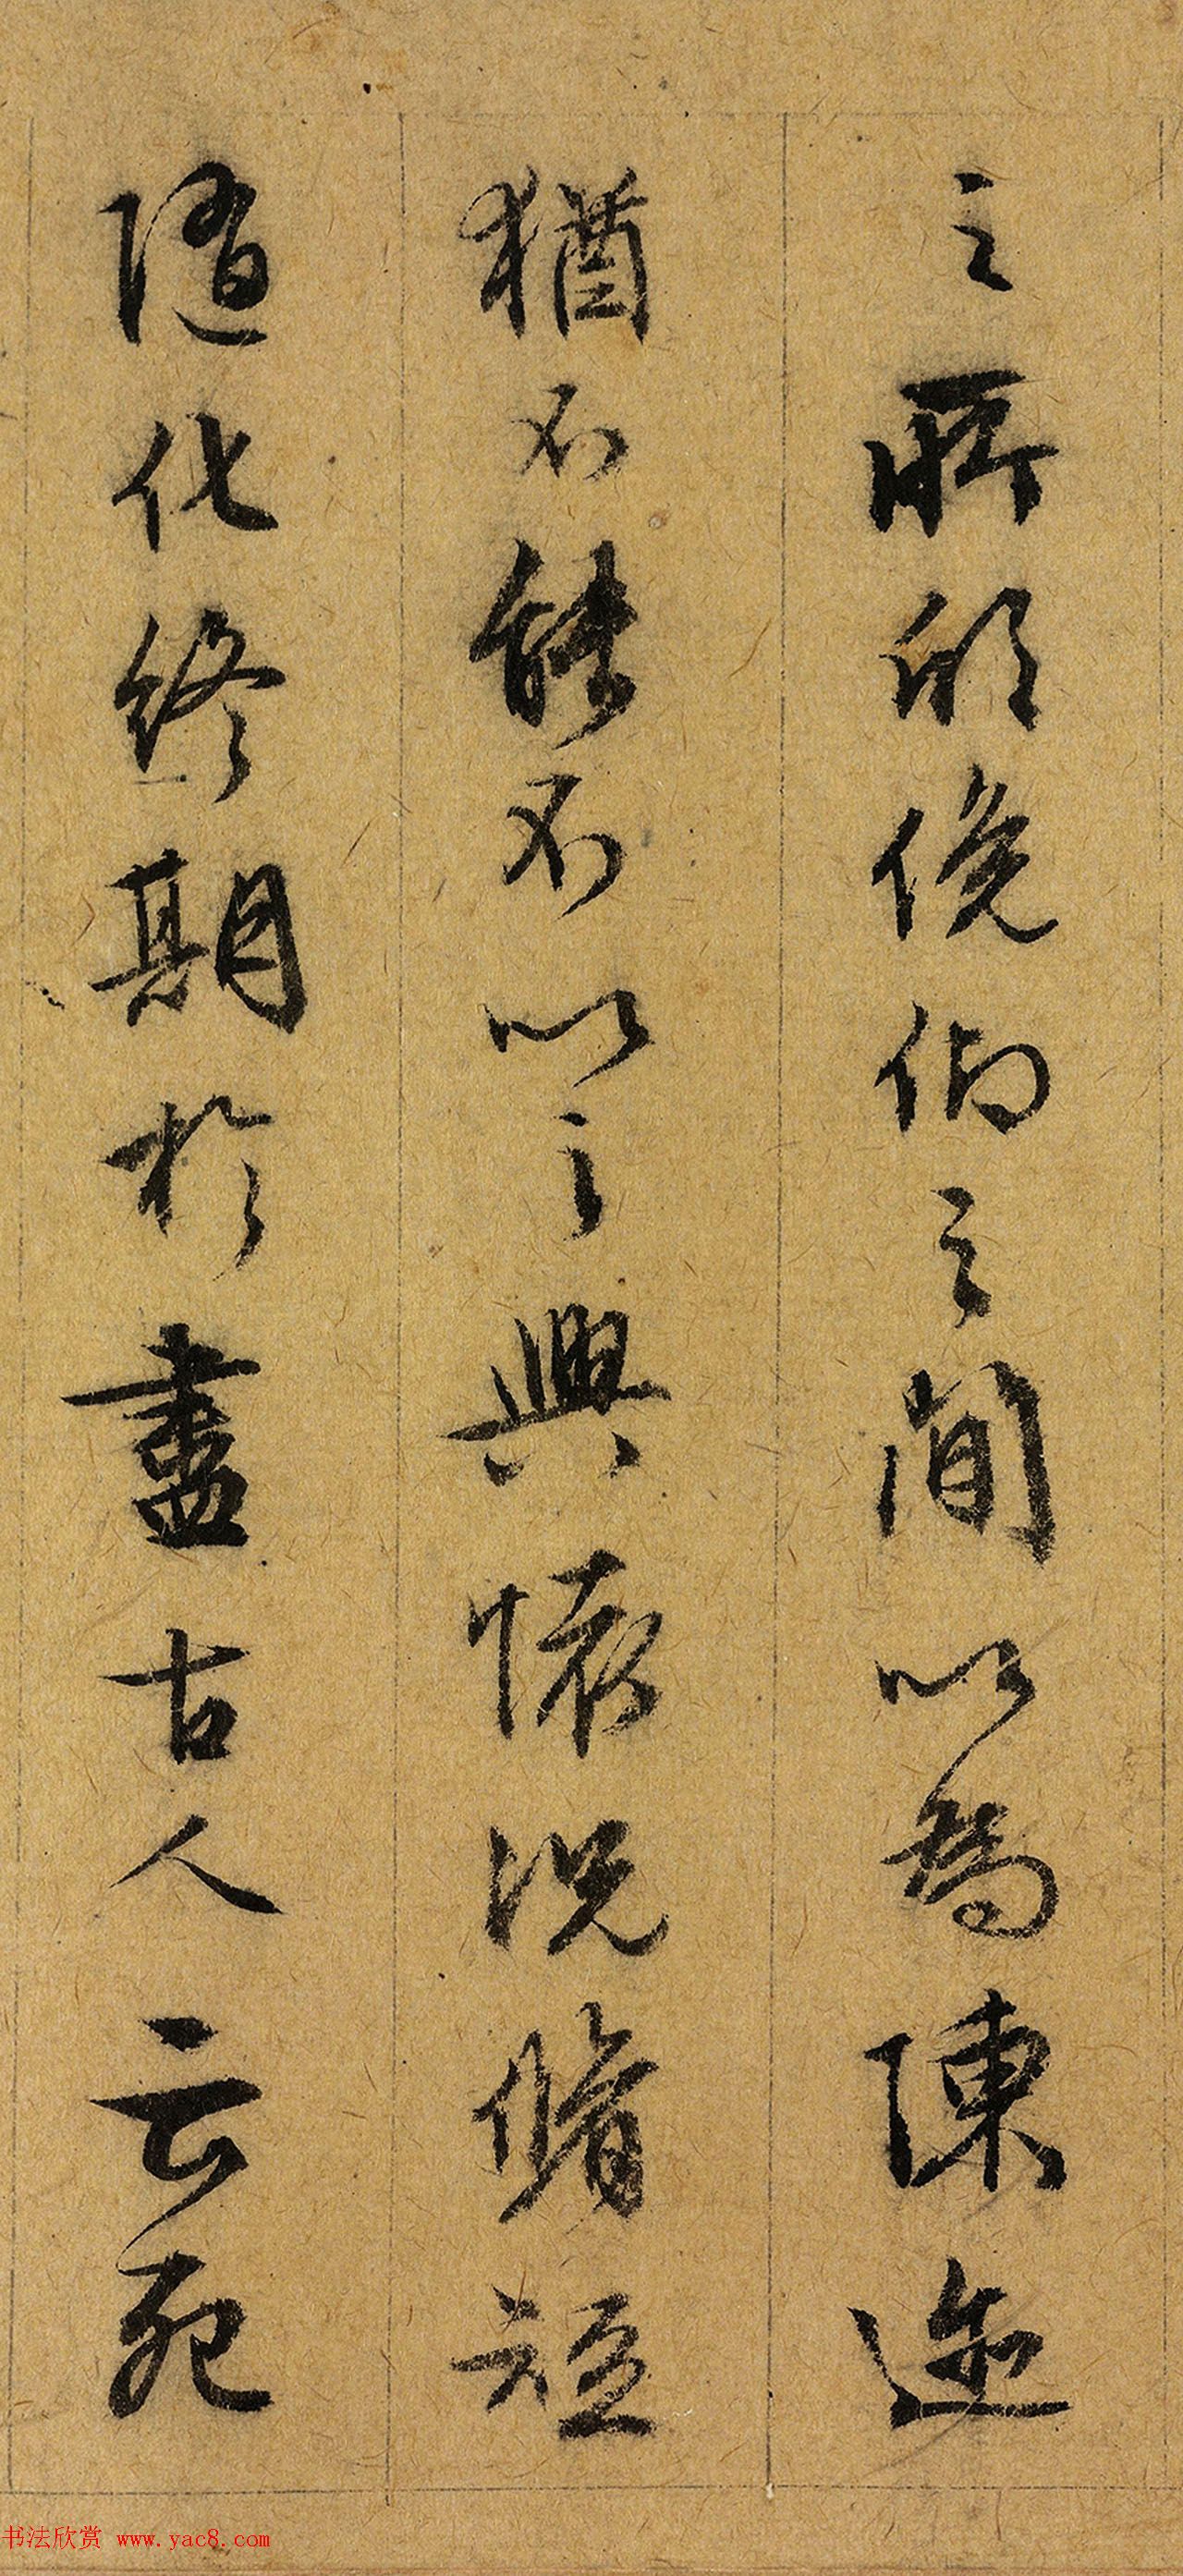 之所欣俛仰之間以為陳迹
猶不能不以之興懷況脩短
隨化終期於盡古人云死
书法欣赏 www.yac8.com